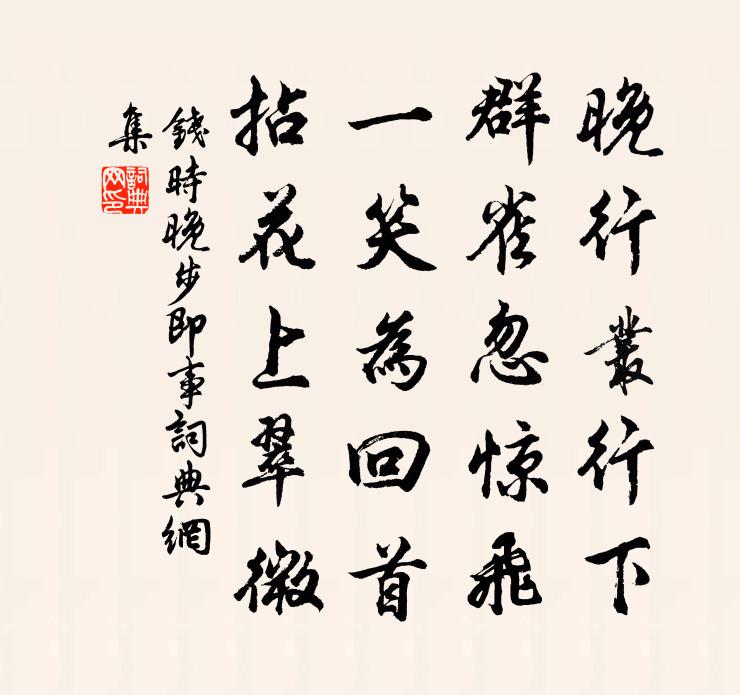 晚行叢行下
群雀忽惊飛
一笑為回首
拈花上翠微
錢時晚步即事詞典網
集
詞典
网印